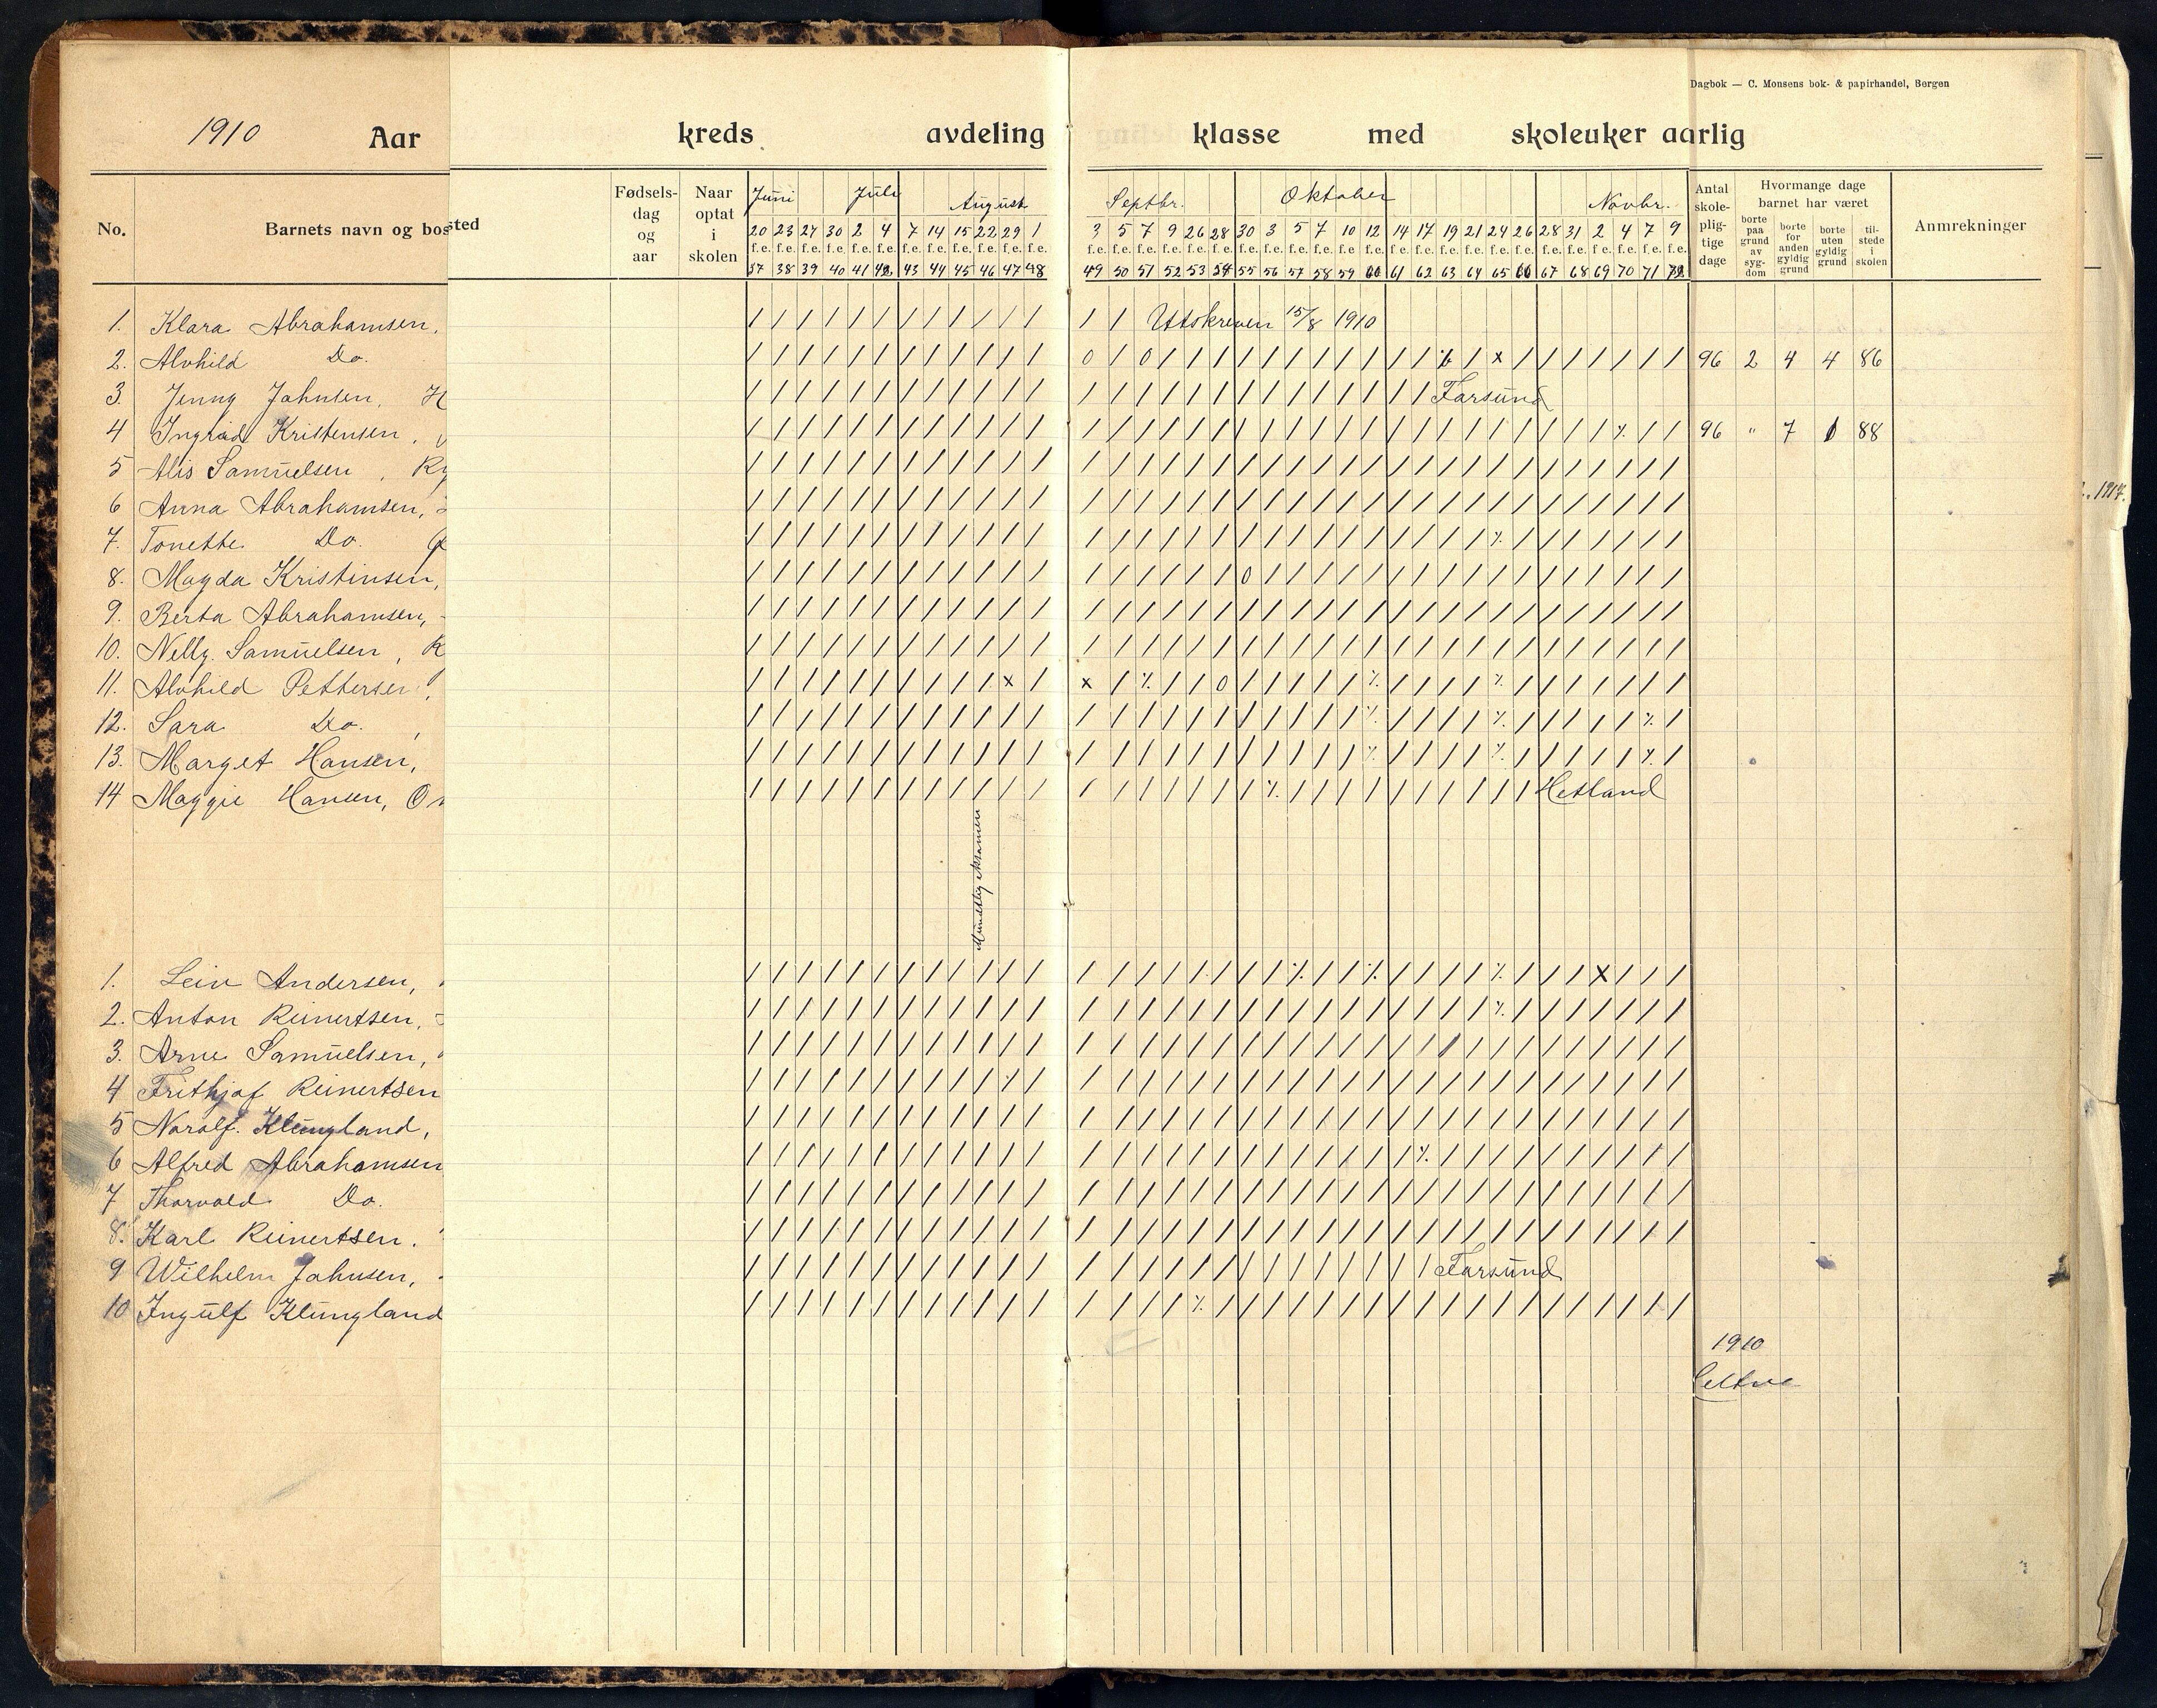 Dagbok — C. Monsens bok- & papirhandel, Bergen
1910 Aar kreds avdeling klasse med skoleuker aarlig
No. Barnets navn og bosted Fødsels-dag og aar Naar optat i skolen Juni Juli August Septbr. Oktober Novbr. Antal skole-plig-tige dage Hvormange dage barnet har været Anmrekninger
borte paa grund av syg-dom borte for anden gyldig grund borte uten gyldig grund til-stede i skolen
20 23 27 30 2 4 7 14 15 22 29 1 3 5 7 9 26 28 30 3 5 7 10 12 14 17 19 21 24 26 28 31 2 4 7 9
f.e. f.e. f.e. f.e. f.e. f.e. f.e. f.e. f.e. f.e. f.e. f.e. f.e. f.e. f.e. f.e. f.e. f.e. f.e. f.e. f.e. f.e. f.e. f.e. f.e. f.e. f.e. f.e. f.e. f.e. f.e. f.e. f.e. f.e. f.e. f.e.
37 38 39 40 41 42 43 44 45 46 47 48 49 50 51 52 53 54 55 56 57 58 59 60 61 62 63 64 65 66 67 68 69 70 71 72
1. Klara Abrahamsen, / / / / / / / / / / / / / / Utskreven 15/8 1910
2. Alvhild Do. / / / / / / / / / / / / 0 / 0 / / / / / / / / / / / / x / / / / / / / 96 2 4 4 86
3. Jenny Jahnsen, H / / / / / / / / / / / / / / / / / / / / / / / / / / Farsund
4 Ingrid Kristensen, 96 " 7 88
5 Alis Samuelsen, Ry
6 Anna Abrahamsen,
7. Tonette Do. G
8. Magda Kristinsen,
9. Berta Abrahamsen,
10. Nelly Samuelsen, R
11. Alvhild Pettersen,
12. Sara Do.,
13. Marget Hansen,
14 Maggie Hansen, O Hetland
Mundtlig eksamen
1. Leiv Andersen,
2. Anton Reinertsen,
3. Arne Samuelsen,
4 Frithjof Reinertsen
5 Noralf Klungland,
6 Alfred Abrahamsen
7 Thorvald Do.
8. Karl Reinertsen.
9 Wilhelm Jahnsen, Farsund
10 Ingulf Klungland
1910
1917.